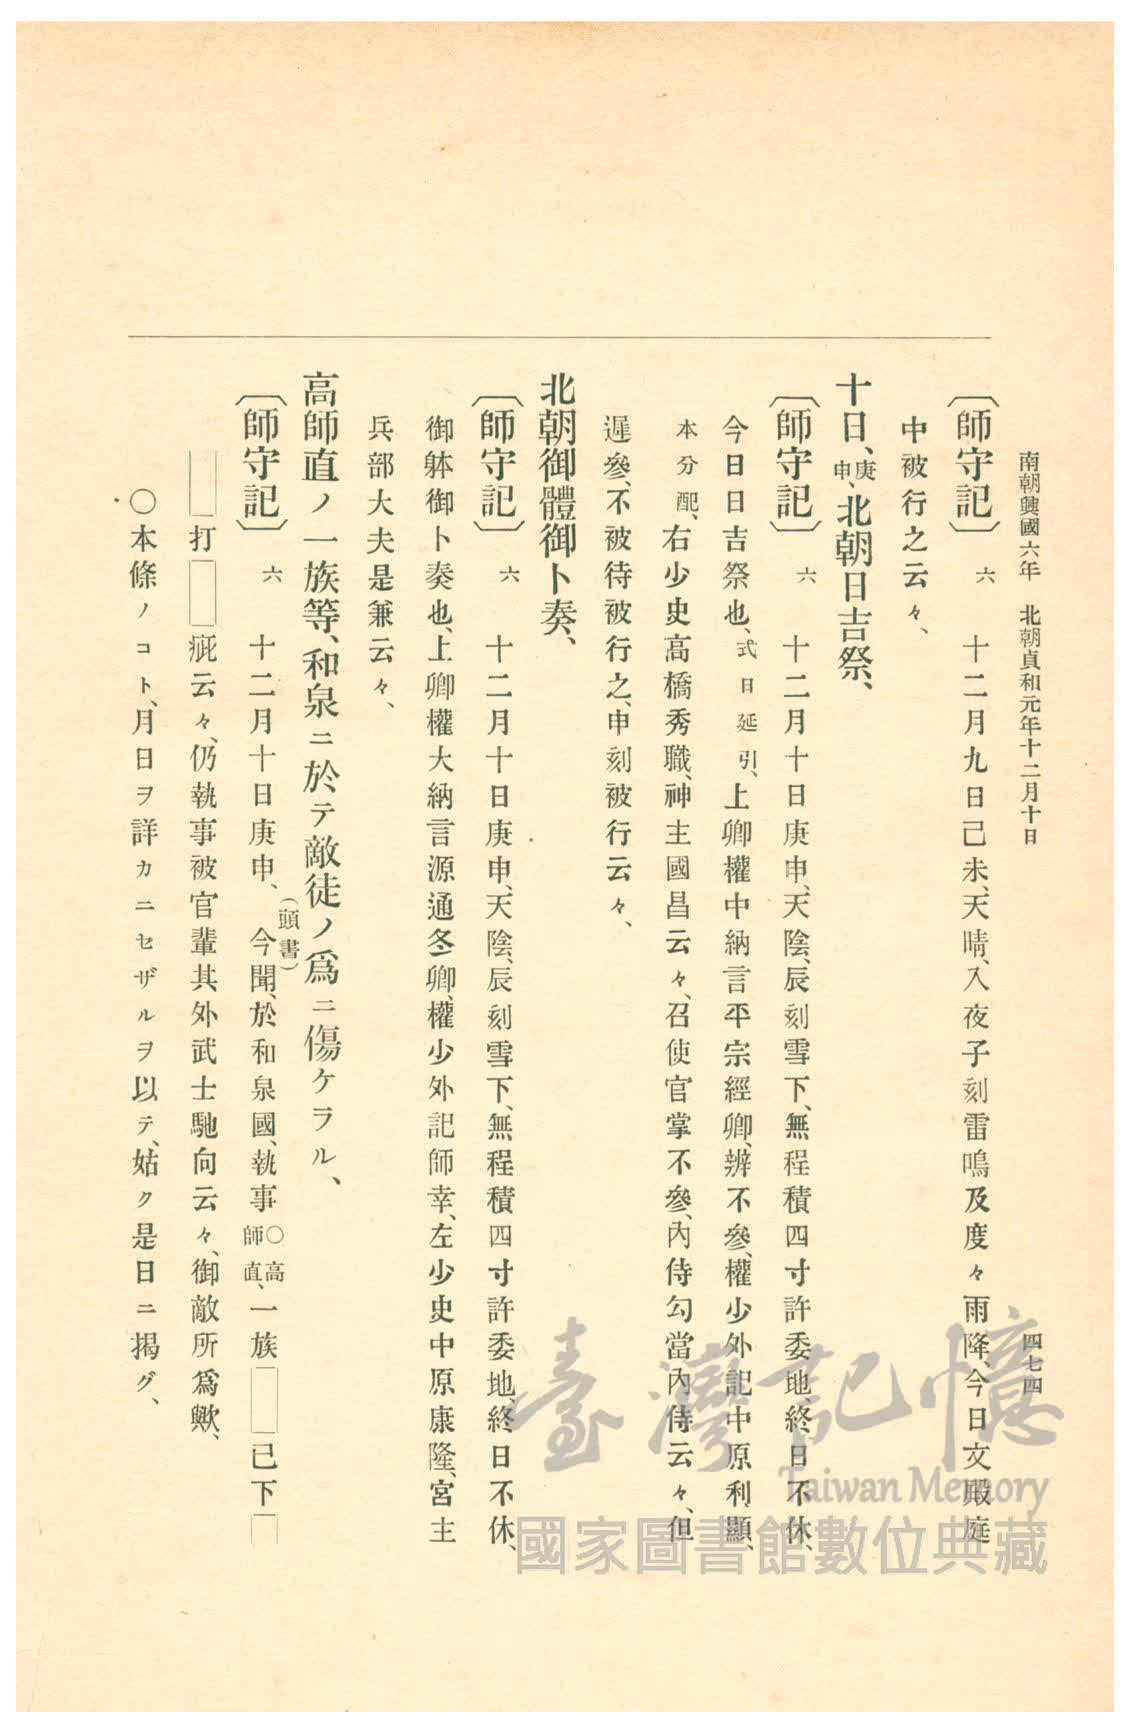 南朝興國六年　北朝貞和元年十二月十日　四七四
〔師守記〕　六　十二月九日己未、天晴、入夜子刻雷鳴及度々雨降、今日文殿庭
中被行之云々、
十日、庚申、北朝日吉祭、
〔師守記〕　六　十二月十日庚申、天陰、辰刻雪下、無程積四寸許委地、終日不休、
今日日吉祭也、式日延引、上卿權中納言平宗經卿、辨不參、權少外記中原利顯、
本分配、右少史高橋秀職、神主國昌云々、召使官掌不參、內侍勾當內侍云々、但
遲參、不被待被行之、申刻被行云々、
北朝御體御卜奏、
〔師守記〕　六　十二月十日庚申、天陰、辰刻雪下、無程積四寸許委地、終日不休、
御躰御卜奏也、上卿權大納言源通冬卿、權少外記師幸、左少史中原康隆、宮主
兵部大夫是兼云々、
高師直ノ一族等、和泉ニ於テ敵徒ノ爲ニ傷ケラル、
〔師守記〕　六　十二月十日庚申、（頭書）今聞、於和泉國、執事○高師直、一族□□已下□
□□打□□疵云々、仍執事被官輩其外武士馳向云々、御敵所爲歟、
○本條ノコト、月日ヲ詳カニセザルヲ以テ、姑ク是日ニ揭グ、
臺灣記憶
Taiwan Memory
國家圖書館數位典藏